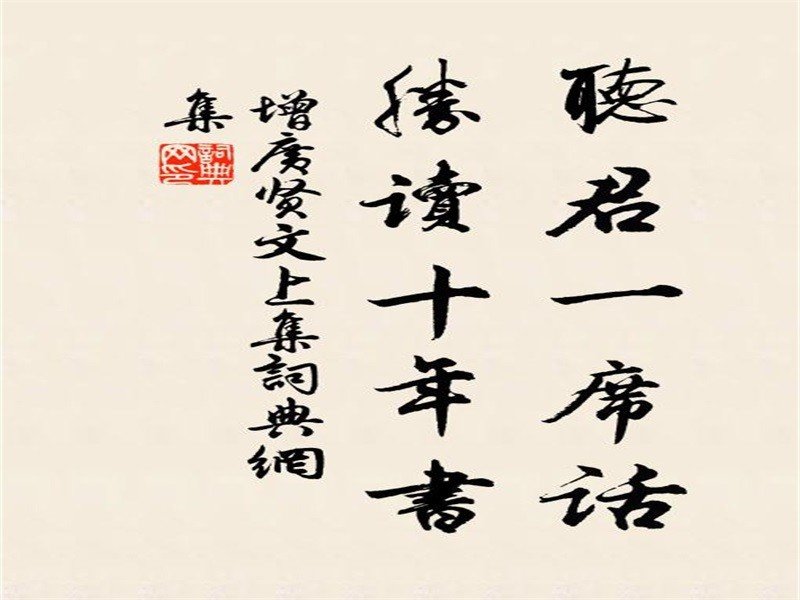 聽君一席话
勝讀十年書
增广贤文上集詞典網
集
詞典网印